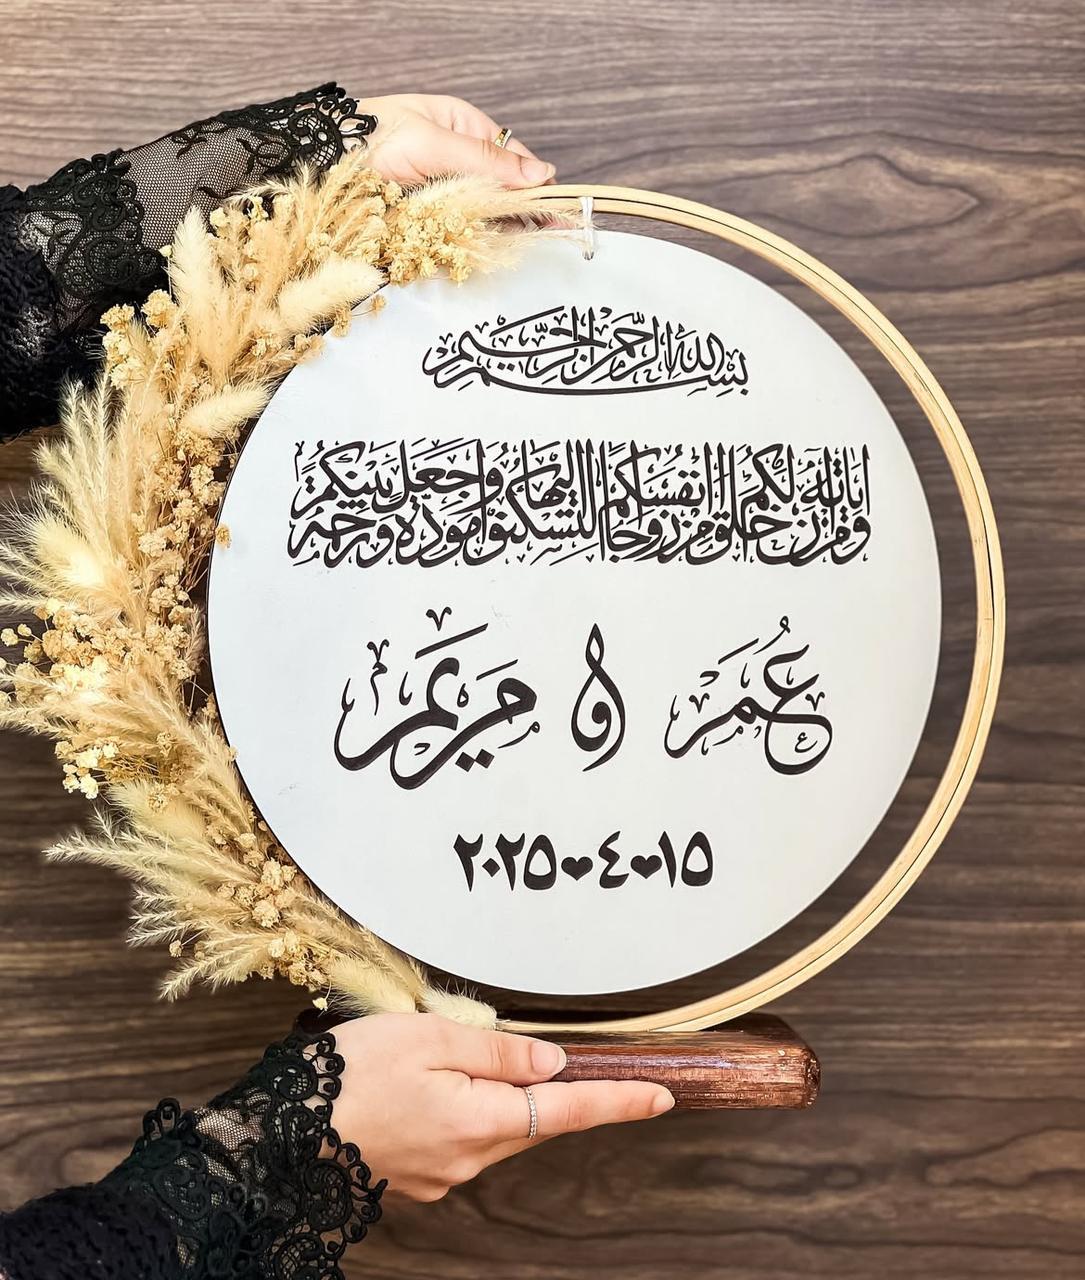 بسم الله الرحمن الرحيم
ومن آياته أن خلق لكم من أنفسكم أزواجا لتسكنوا إليها وجعل بينكم مودة ورحمة
عُمر و مريم
١٥♥٤♥٢٠٢٥